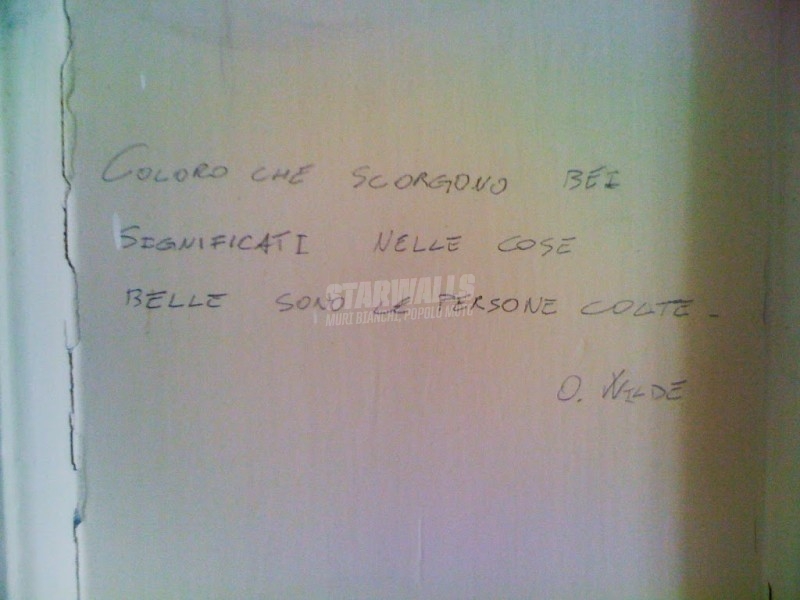 COLORO CHE SCORGONO BEI
SIGNIFICATI NELLE COSE
BELLE SONO LE PERSONE COLTE.
O. WILDE
STARWALLS
MURI BIANCHI, POPOLO MUTO